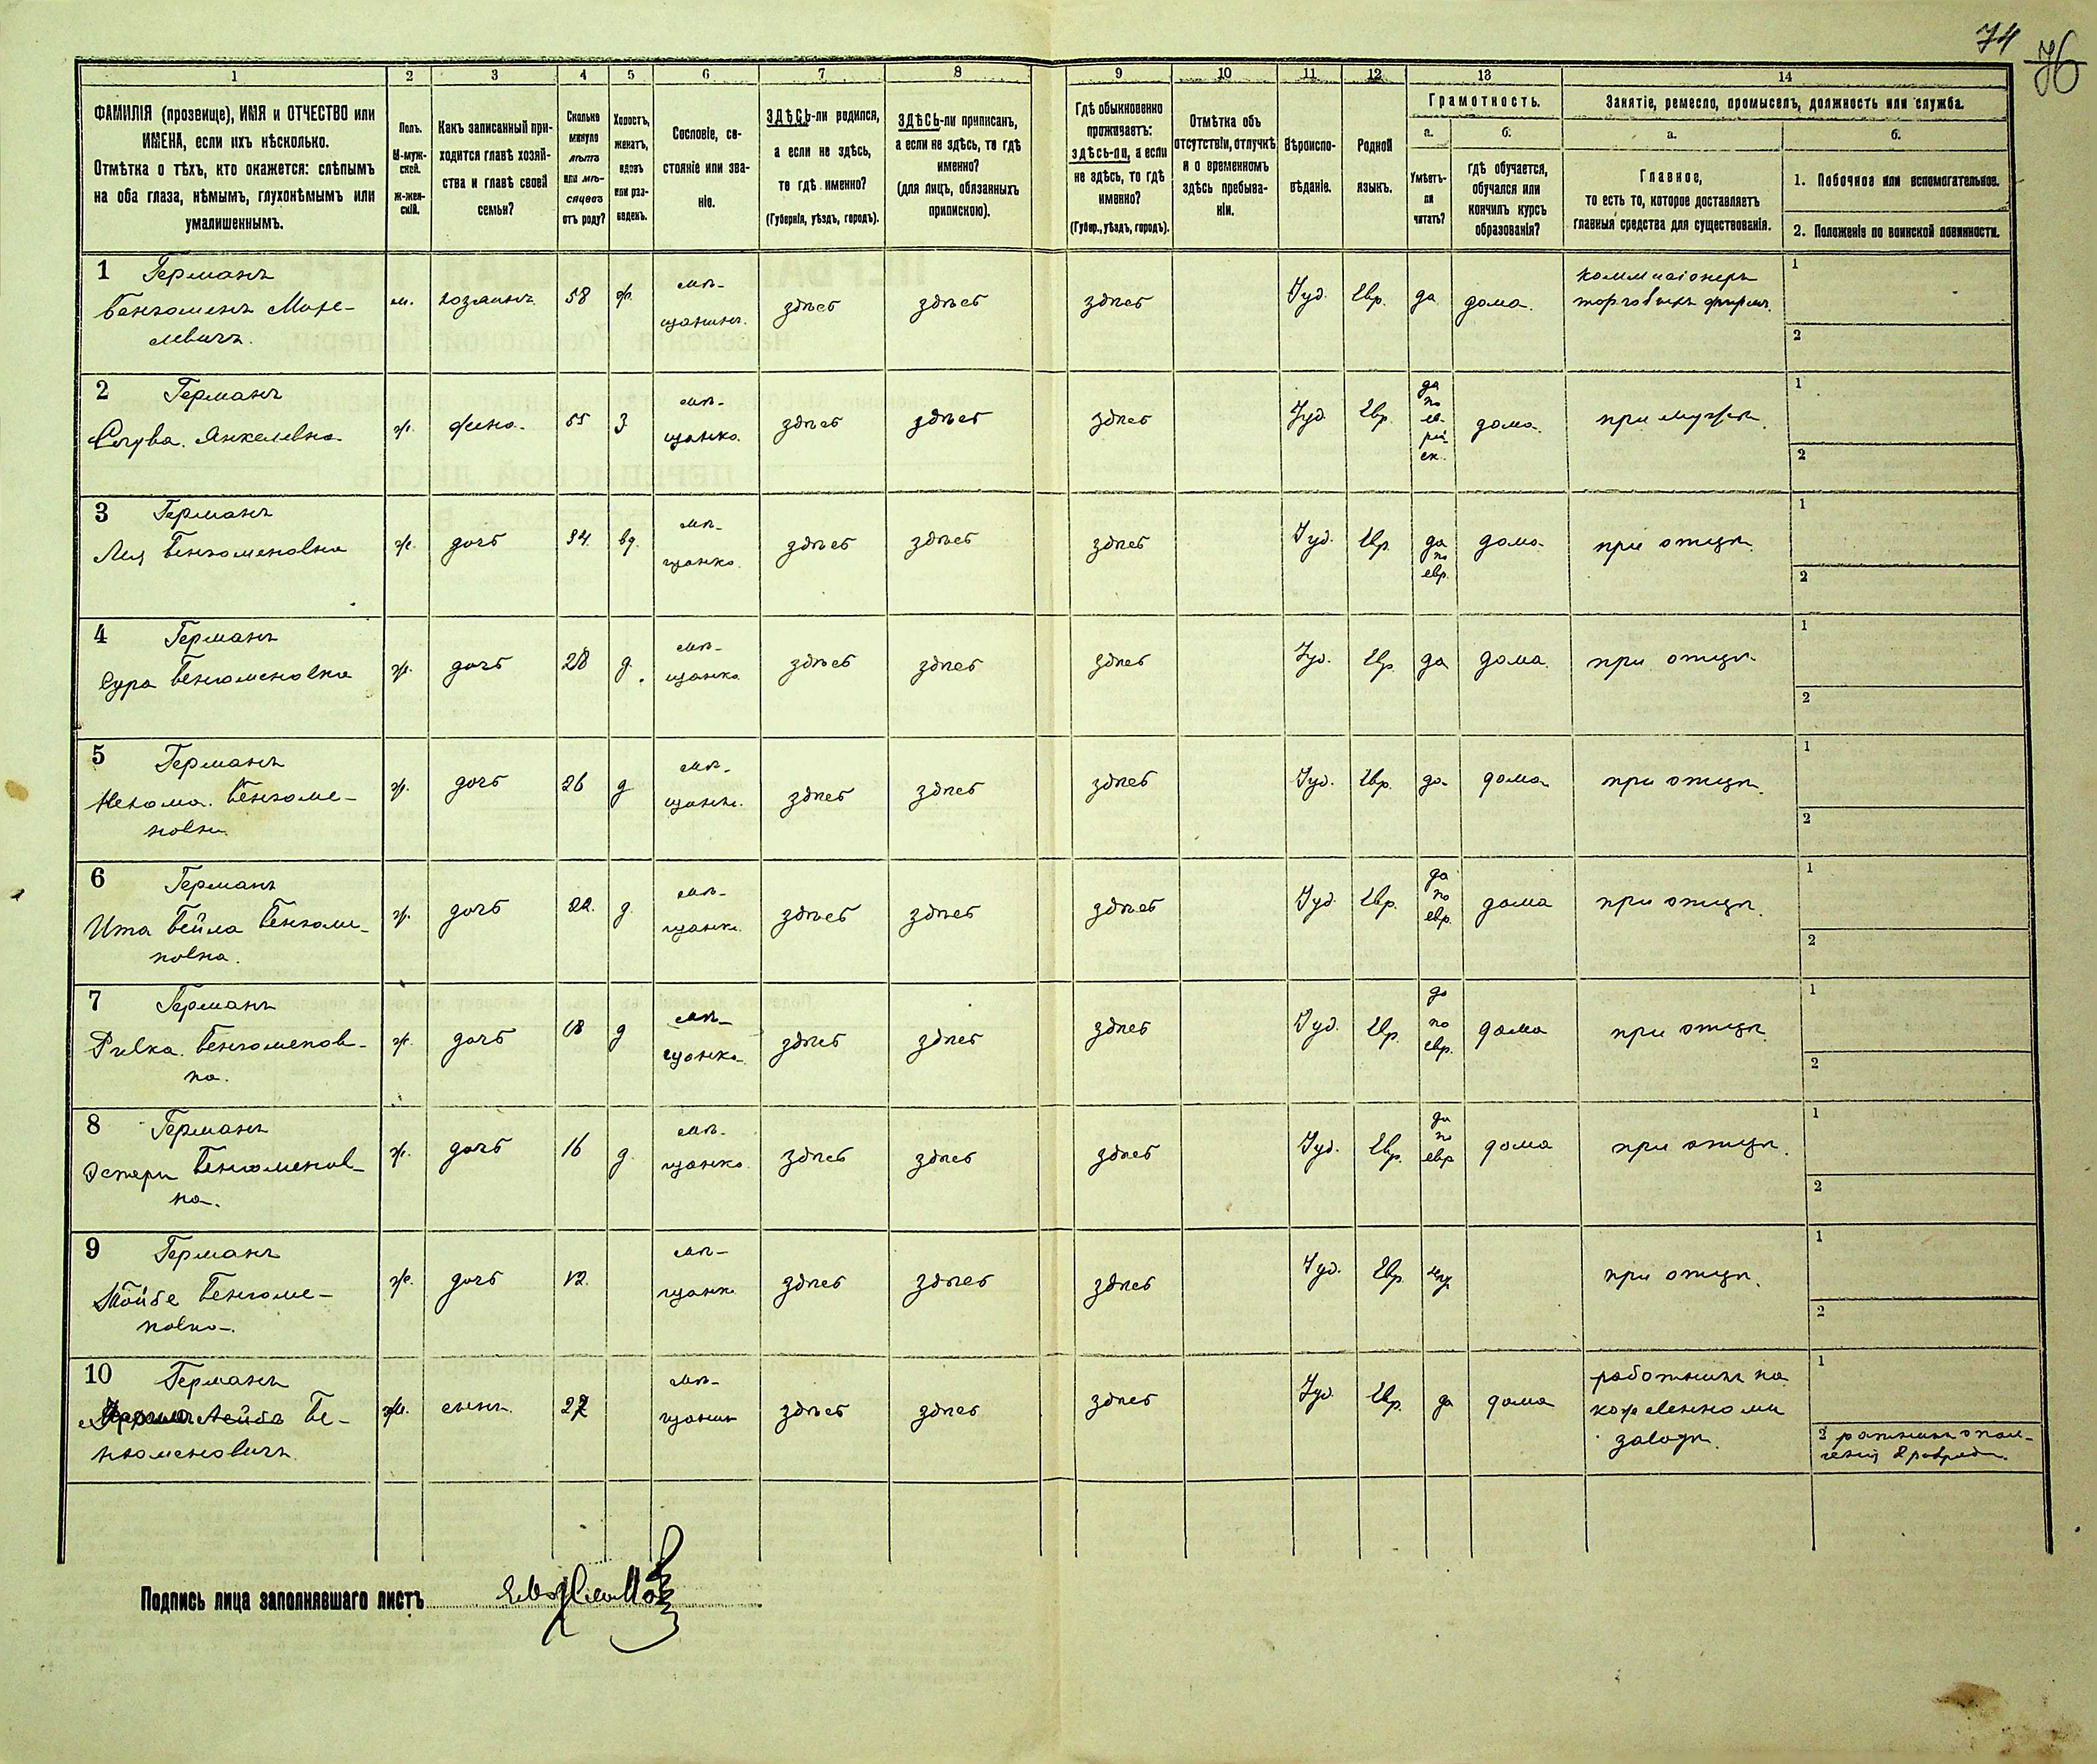 74
76
1 2 3 4 5 6 7 8 9 10 11 12 13 14
ФАМИЛІЯ (прозвище), ИМЯ и ОТЧЕСТВО или ИМЕНА, если ихъ нѣсколько.
Отмѣтка о тѣхъ, кто окажется: слѣпымъ на оба глаза, нѣмымъ, глухонѣмымъ или умалишеннымъ.
Полъ. М-муж-ской. Ж-жен-скій.
Какъ записанный при-ходится главѣ хозяй-ства и главѣ своей семьи?
Сколько минуло лѣтъ или мѣ-сяцевъ отъ роду?
Холостъ, женатъ, вдовъ или раз-веденъ.
Сословіе, со-стояніе или зва-ніе.
ЗДѢСЬ-ли родился, а если не здѣсь, то гдѣ именно? (Губернія, уѣздъ, городъ).
ЗДѢСЬ-ли приписанъ, а если не здѣсь, то гдѣ именно? (для лицъ, обязанныхъ припискою).
Гдѣ обыкновенно проживаетъ: здѣсь-ли, а если не здѣсь, то гдѣ именно? (Губер., уѣздъ, городъ).
Отмѣтка объ отсутствіи, отлучкѣ и о временномъ здѣсь пребыва-ніи.
Вѣроиспо-вѣданіе.
Родной языкъ.
Грамотность.
а. Умѣетъ-ли читать?
б. Гдѣ обучается, обучался или кончилъ курсъ образованія?
Занятіе, ремесло, промыселъ, должность или служба.
а. Главное, то есть то, которое доставляетъ главныя средства для существованія.
б.
1. Побочное или вспомогательное.
2. Положеніе по воинской повинности.
1 Германъ
Беньоменъ Море-
левичъ.
м. хозяинъ 58 ж. мѣ-щанинъ. здѣсь здѣсь здѣсь Іуд. Евр. да дома. коммисіонеръ торговыхъ фирмъ.
1
2
2 Германъ
Янкелевна
ж. жена. 55 З мѣ-щанка. здѣсь здѣсь здѣсь Іуд. Евр. да по ев-рей-ск. дома. при мужѣ.
1
2
3 Германъ
Лея Беньоменовна
ж. дочь 34. вд. мѣ-щанка. здѣсь здѣсь здѣсь Іуд. Евр. да по евр. дома при отцѣ.
1
2
4 Германъ
Сура Беньоменовна
ж. дочь 28 д. мѣ-щанка здѣсь здѣсь здѣсь Іуд. Евр. да дома. при отцѣ.
1
2
5 Германъ
Нехама. Беньоме-
новна.
ж. дочь 26 д мѣ-щанка. здѣсь здѣсь здѣсь Іуд. Евр. да дома при отцѣ.
1
2
6 Германъ
Ита Бейла Беньоме-
новна.
ж. дочь 22. д. мѣ-щанка. здѣсь здѣсь здѣсь Іуд. Евр. да по евр. дома при отцѣ.
1
2
7 Германъ
Ривка. Беньоменов-
на.
ж. дочь 18 д мѣ-щанка. здѣсь здѣсь здѣсь Іуд. Евр. да по евр. дома при отцѣ.
1
2
8 Германъ
Эстери Беньоменов-
на.
ж. дочь 16 д. мѣ-щанка. здѣсь здѣсь здѣсь Іуд. Евр. да по евр дома при отцѣ.
1
2
9 Германъ
Тойбе Беньоме-
новна.
ж. дочь 12. мѣ-щанк. здѣсь здѣсь здѣсь Іуд. Евр. при отцѣ.
1
2
10 Германъ
Лейба Бе-
ньоменовичъ.
сынъ. 27 мѣ-щанин здѣсь здѣсь здѣсь Іуд. Евр. да дома работникъ на кожевенномъ заводѣ.
1
2 ратникъ опол-
ченія 2 разряда.
Подпись лица заполнявшаго листъ